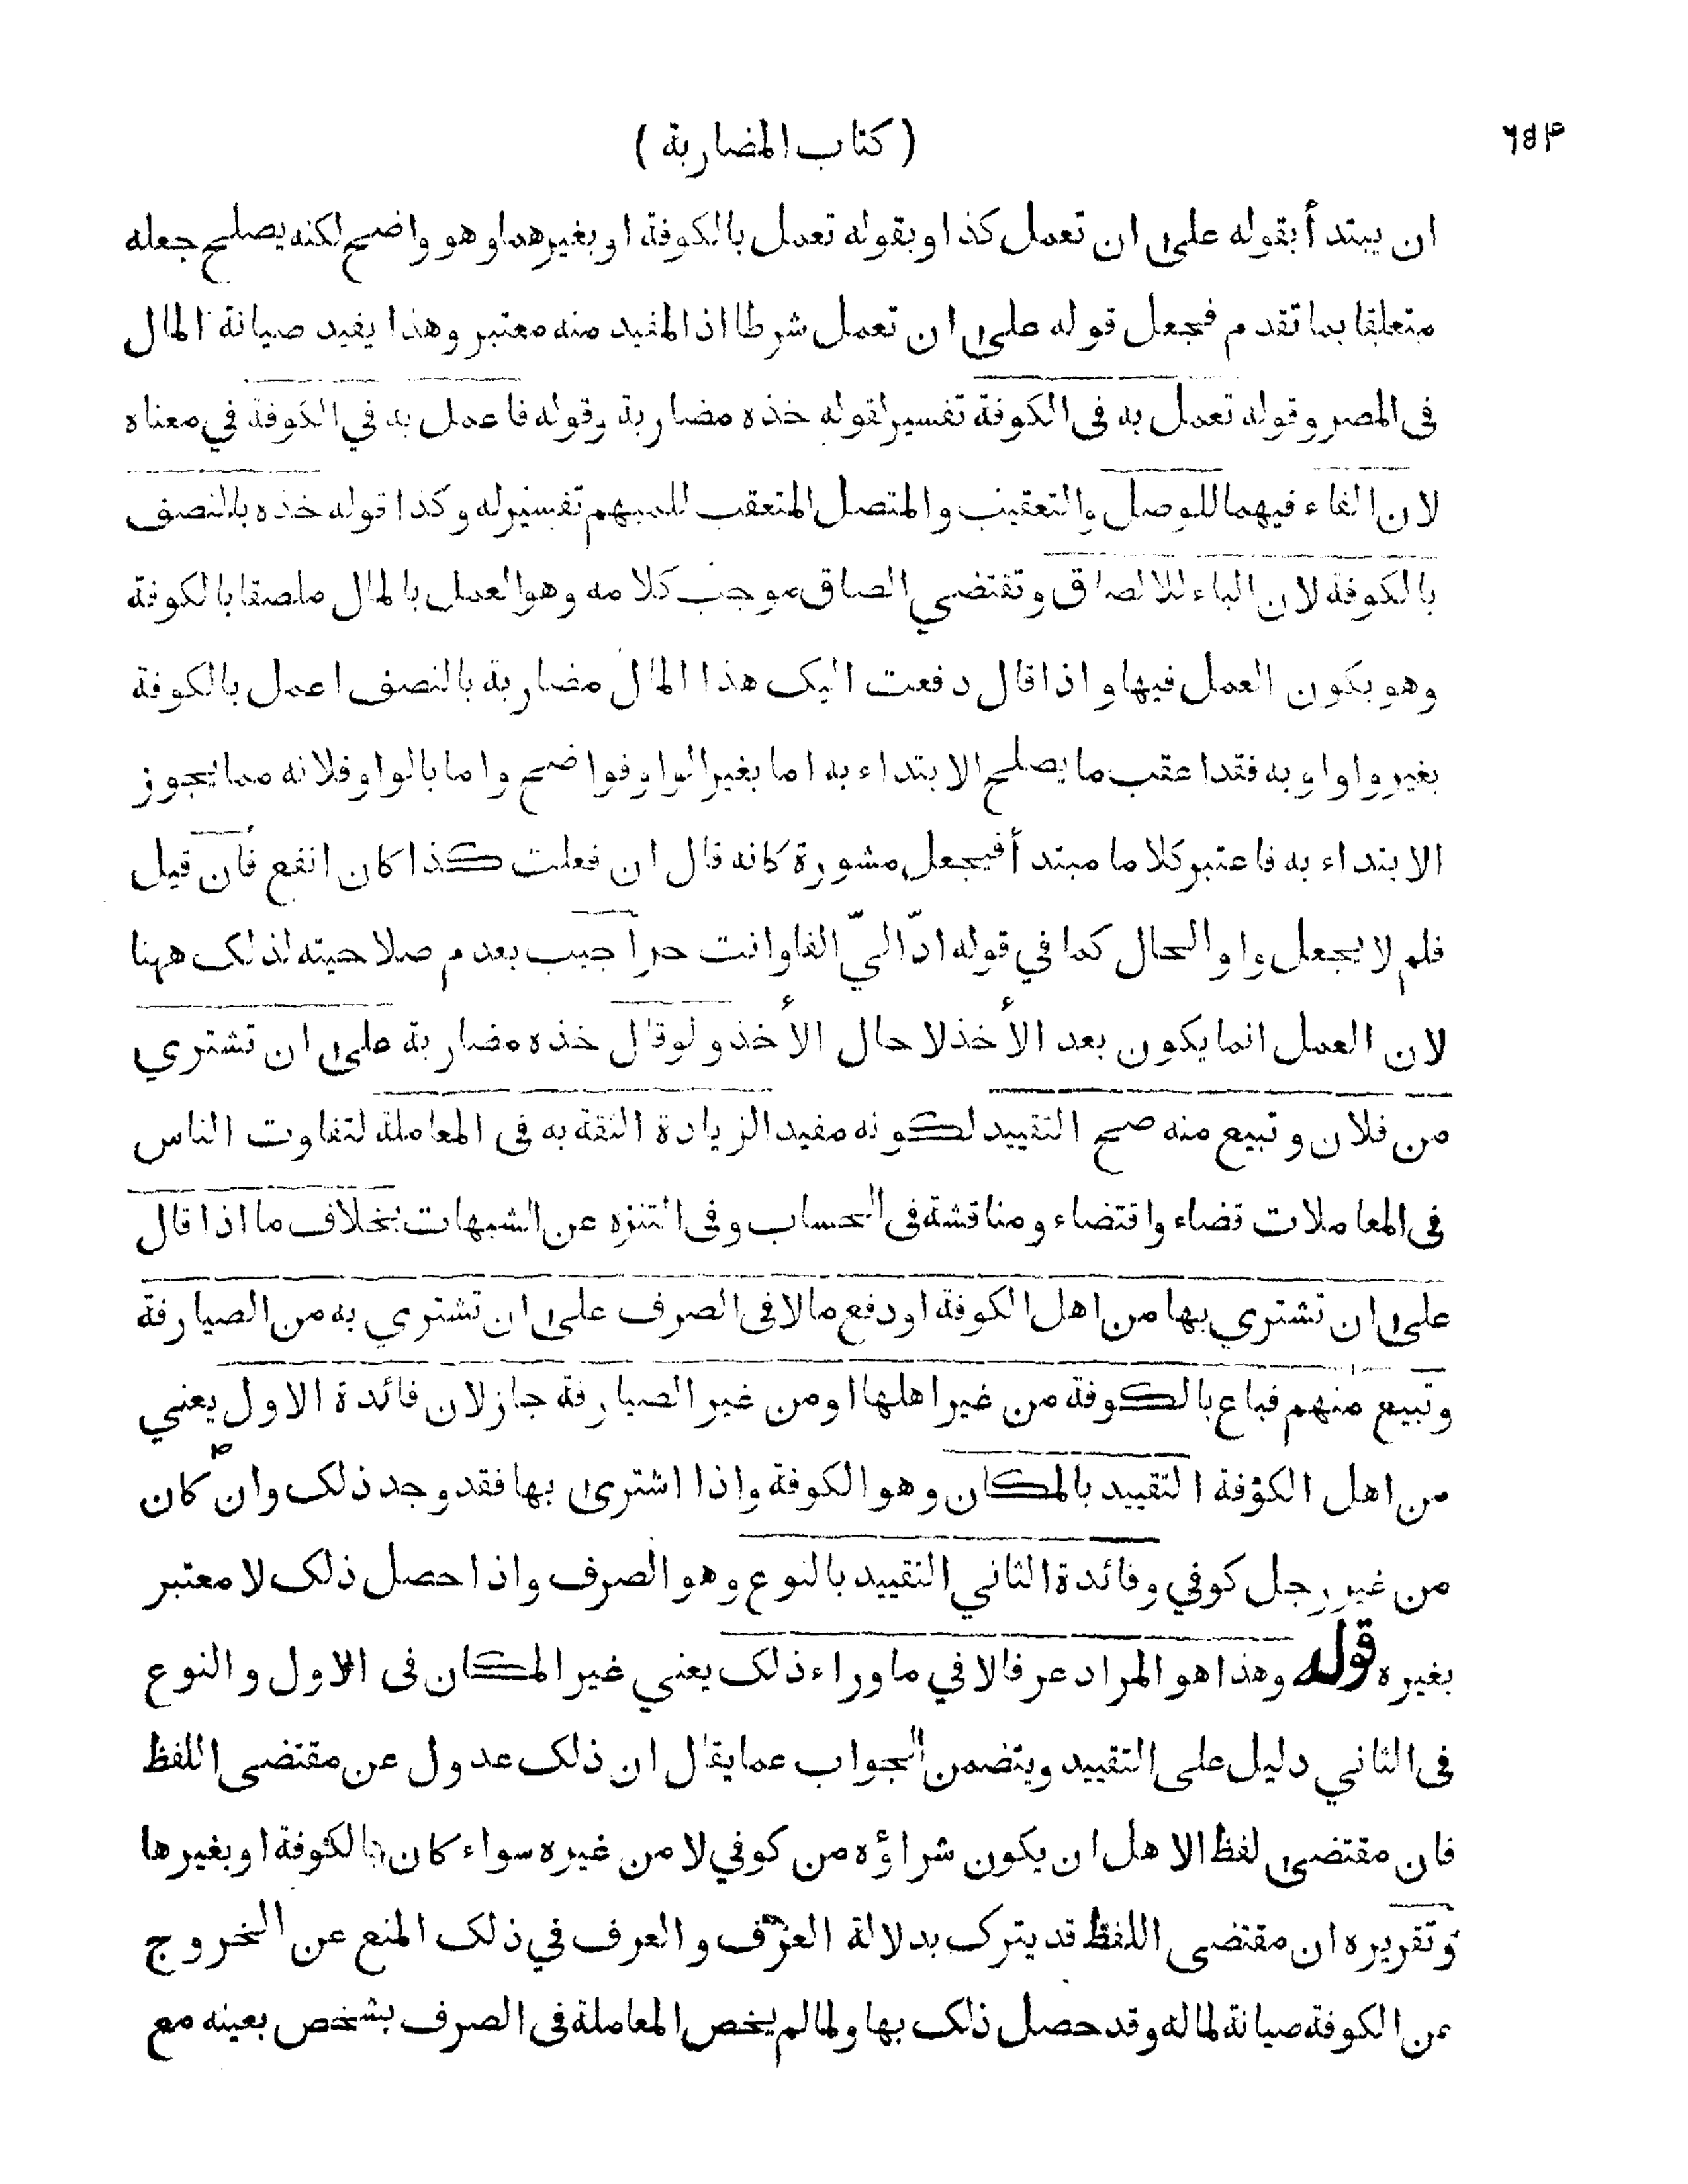 ( كتاب المضاربة )
ان يبتدأ بقوله على ان تعمل كذا وبقوله تعمل بالكوفة او بغيرهما وهو واضح لكنه يصلح جعله
متعلقا بما تقدم فجعل قوله على ان تعمل شرطا اذ المفيد منه معتبر وهذا يفيد صيانة المال
فى المصر وقوله تعمل به فى الكوفة تفسير لقوله خذه مضاربة وقوله فاعمل به في الكوفة في معناه
لان الفاء فيهما للوصل والتعقيب والمتصل المتعقب للمبهم تفسير له وكذا قوله خذه بالنصف
بالكوفة لان الباء للالصاق وتقتضي الصاق موجب كلامه وهو العمل بالمال ملصقا بالكوفة
وهو بكون العمل فيها واذا قال دفعت اليك هذا المال مضاربة بالنصف اعمل بالكوفة
بغير واو او به فقد اعقب ما يصلح الابتداء به اما بغير الواو فواضح واما بالواو فلانه مما يجوز
الابتداء به فاعتبر كلاما مبتدأ فيجعل مشورة كانه قال ان فعلت كذا كان انفع فان قيل
فلم لا يجعل واو الحال كما في قوله ادّ اليّ الفا وانت حر اجيب بعدم صلاحيته لذلك ههنا
لان العمل انما يكون بعد الأخذ لا حال الأخذ ولو قال خذه مضاربة على ان تشتري
من فلان وتبيع منه صح التقييد لكونه مفيد الزيادة الثقة به فى المعاملة لتفاوت الناس
فى المعاملات قضاء واقتضاء ومناقشة فى الحساب وفى التنزه عن الشبهات بخلاف ما اذا قال
على ان تشتري بها من اهل الكوفة او دفع مالا فى الصرف على ان تشتري به من الصيارفة
وتبيع منهم فباع بالكوفة من غير اهلها او من غير الصيارفة جاز لان فائدة الاول يعني
من اهل الكوفة التقييد بالمكان وهو الكوفة واذا اشترى بها فقد وجد ذلك وان كان
من غير رجل كوفي وفائدة الثاني التقييد بالنوع وهو الصرف واذا حصل ذلك لا معتبر
بغيره قوله وهذا هو المراد عرفا لا في ما وراء ذلك يعني غير المكان فى الاول والنوع
فى الثاني دليل على التقييد ويتضمن الجواب عما يقال ان ذلك عدول عن مقتضى اللفظ
فان مقتضى لفظ الاهل ان يكون شراؤه من كوفي لا من غيره سواء كان بالكوفة او بغيرها
وتقريره ان مقتضى اللفظ قد يترك بدلالة العرف والعرف في ذلك المنع عن الخروج
من الكوفة صيانة لماله وقد حصل ذلك بها ولما لم يخص المعاملة فى الصرف بشخص بعينه مع